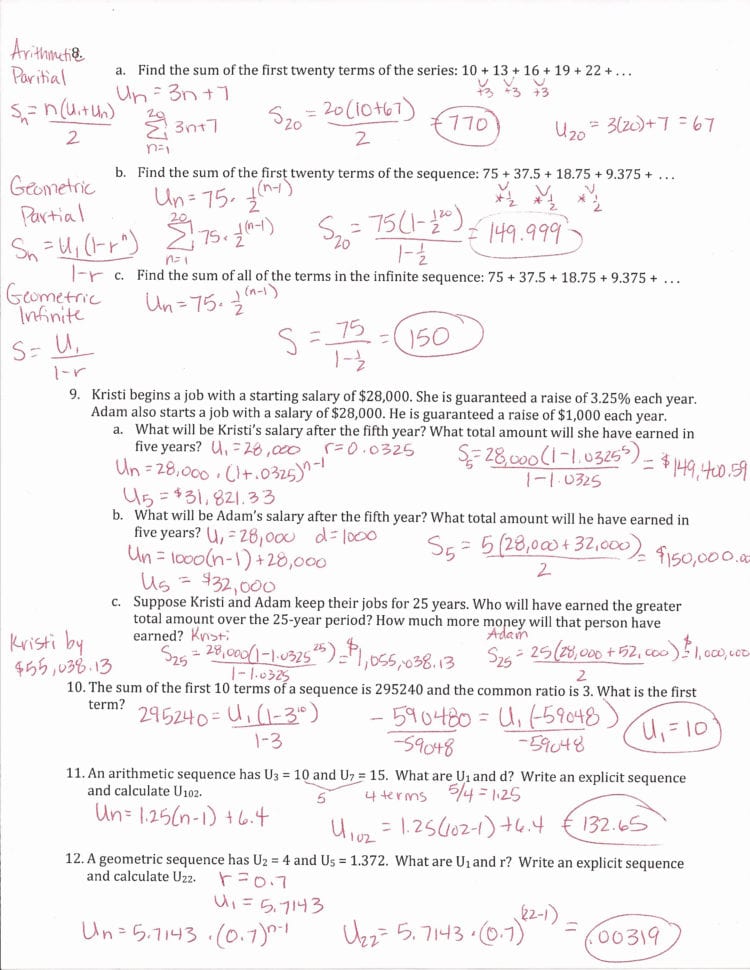 Arithmetic 8.
Paritial
a. Find the sum of the first twenty terms of the series: 10 + 13 + 16 + 19 + 22 + ...
+3 +3 +3
Un = 3n+7
Sn = n(U1+Un) / 2
20 Σ n=1 3n+7
S20 = 20(10+67) / 2 = 770
U20 = 3(20)+7 = 67
b. Find the sum of the first twenty terms of the sequence: 75 + 37.5 + 18.75 + 9.375 + ...
*1/2 *1/2 *1/2
Geometric
Partial
Un = 75 · 1/2^(n-1)
Sn = U1(1-r^n) / 1-r
20 Σ n=1 75 · 1/2^(n-1)
S20 = 75(1-1/2^20) / 1-1/2 = 149.999
c. Find the sum of all of the terms in the infinite sequence: 75 + 37.5 + 18.75 + 9.375 + ...
Geometric
Infinite
Un = 75 · 1/2^(n-1)
S = U1 / 1-r
S = 75 / 1-1/2 = 150
9. Kristi begins a job with a starting salary of $28,000. She is guaranteed a raise of 3.25% each year.
Adam also starts a job with a salary of $28,000. He is guaranteed a raise of $1,000 each year.
a. What will be Kristi's salary after the fifth year? What total amount will she have earned in
five years? U1 = 28,000 r = 0.0325
Un = 28,000 · (1+.0325)^n-1
S5 = 28,000(1-1.0325^5) / 1-1.0325 = $149,400.59
U5 = $31,821.33
b. What will be Adam's salary after the fifth year? What total amount will he have earned in
five years? U1 = 28,000 d = 1000
Un = 1000(n-1) + 28,000
S5 = 5(28,000 + 32,000) / 2 = $150,000.00
U5 = $32,000
c. Suppose Kristi and Adam keep their jobs for 25 years. Who will have earned the greater
total amount over the 25-year period? How much more money will that person have
earned? Kristi Adam
Kristi by
$55,038.13
S25 = 28,000(1-1.0325^25) / 1-1.0325 = $1,055,038.13
S25 = 25(28,000 + 52,000) / 2 = $1,000,000
10. The sum of the first 10 terms of a sequence is 295240 and the common ratio is 3. What is the first
term?
295240 = U1(1-3^10) / 1-3
-590480 / -59048 = U1(-59048) / -59048
U1 = 10
11. An arithmetic sequence has U3 = 10 and U7 = 15. What are U1 and d? Write an explicit sequence
and calculate U102.
5 4 terms 5/4 = 1.25
Un = 1.25(n-1) + 6.4
U102 = 1.25(102-1) + 6.4 = 132.65
12. A geometric sequence has U2 = 4 and U5 = 1.372. What are U1 and r? Write an explicit sequence
and calculate U22. r = 0.7
U1 = 5.7143
Un = 5.7143 · (0.7)^n-1
U22 = 5.7143 · (0.7)^(22-1) = .00319